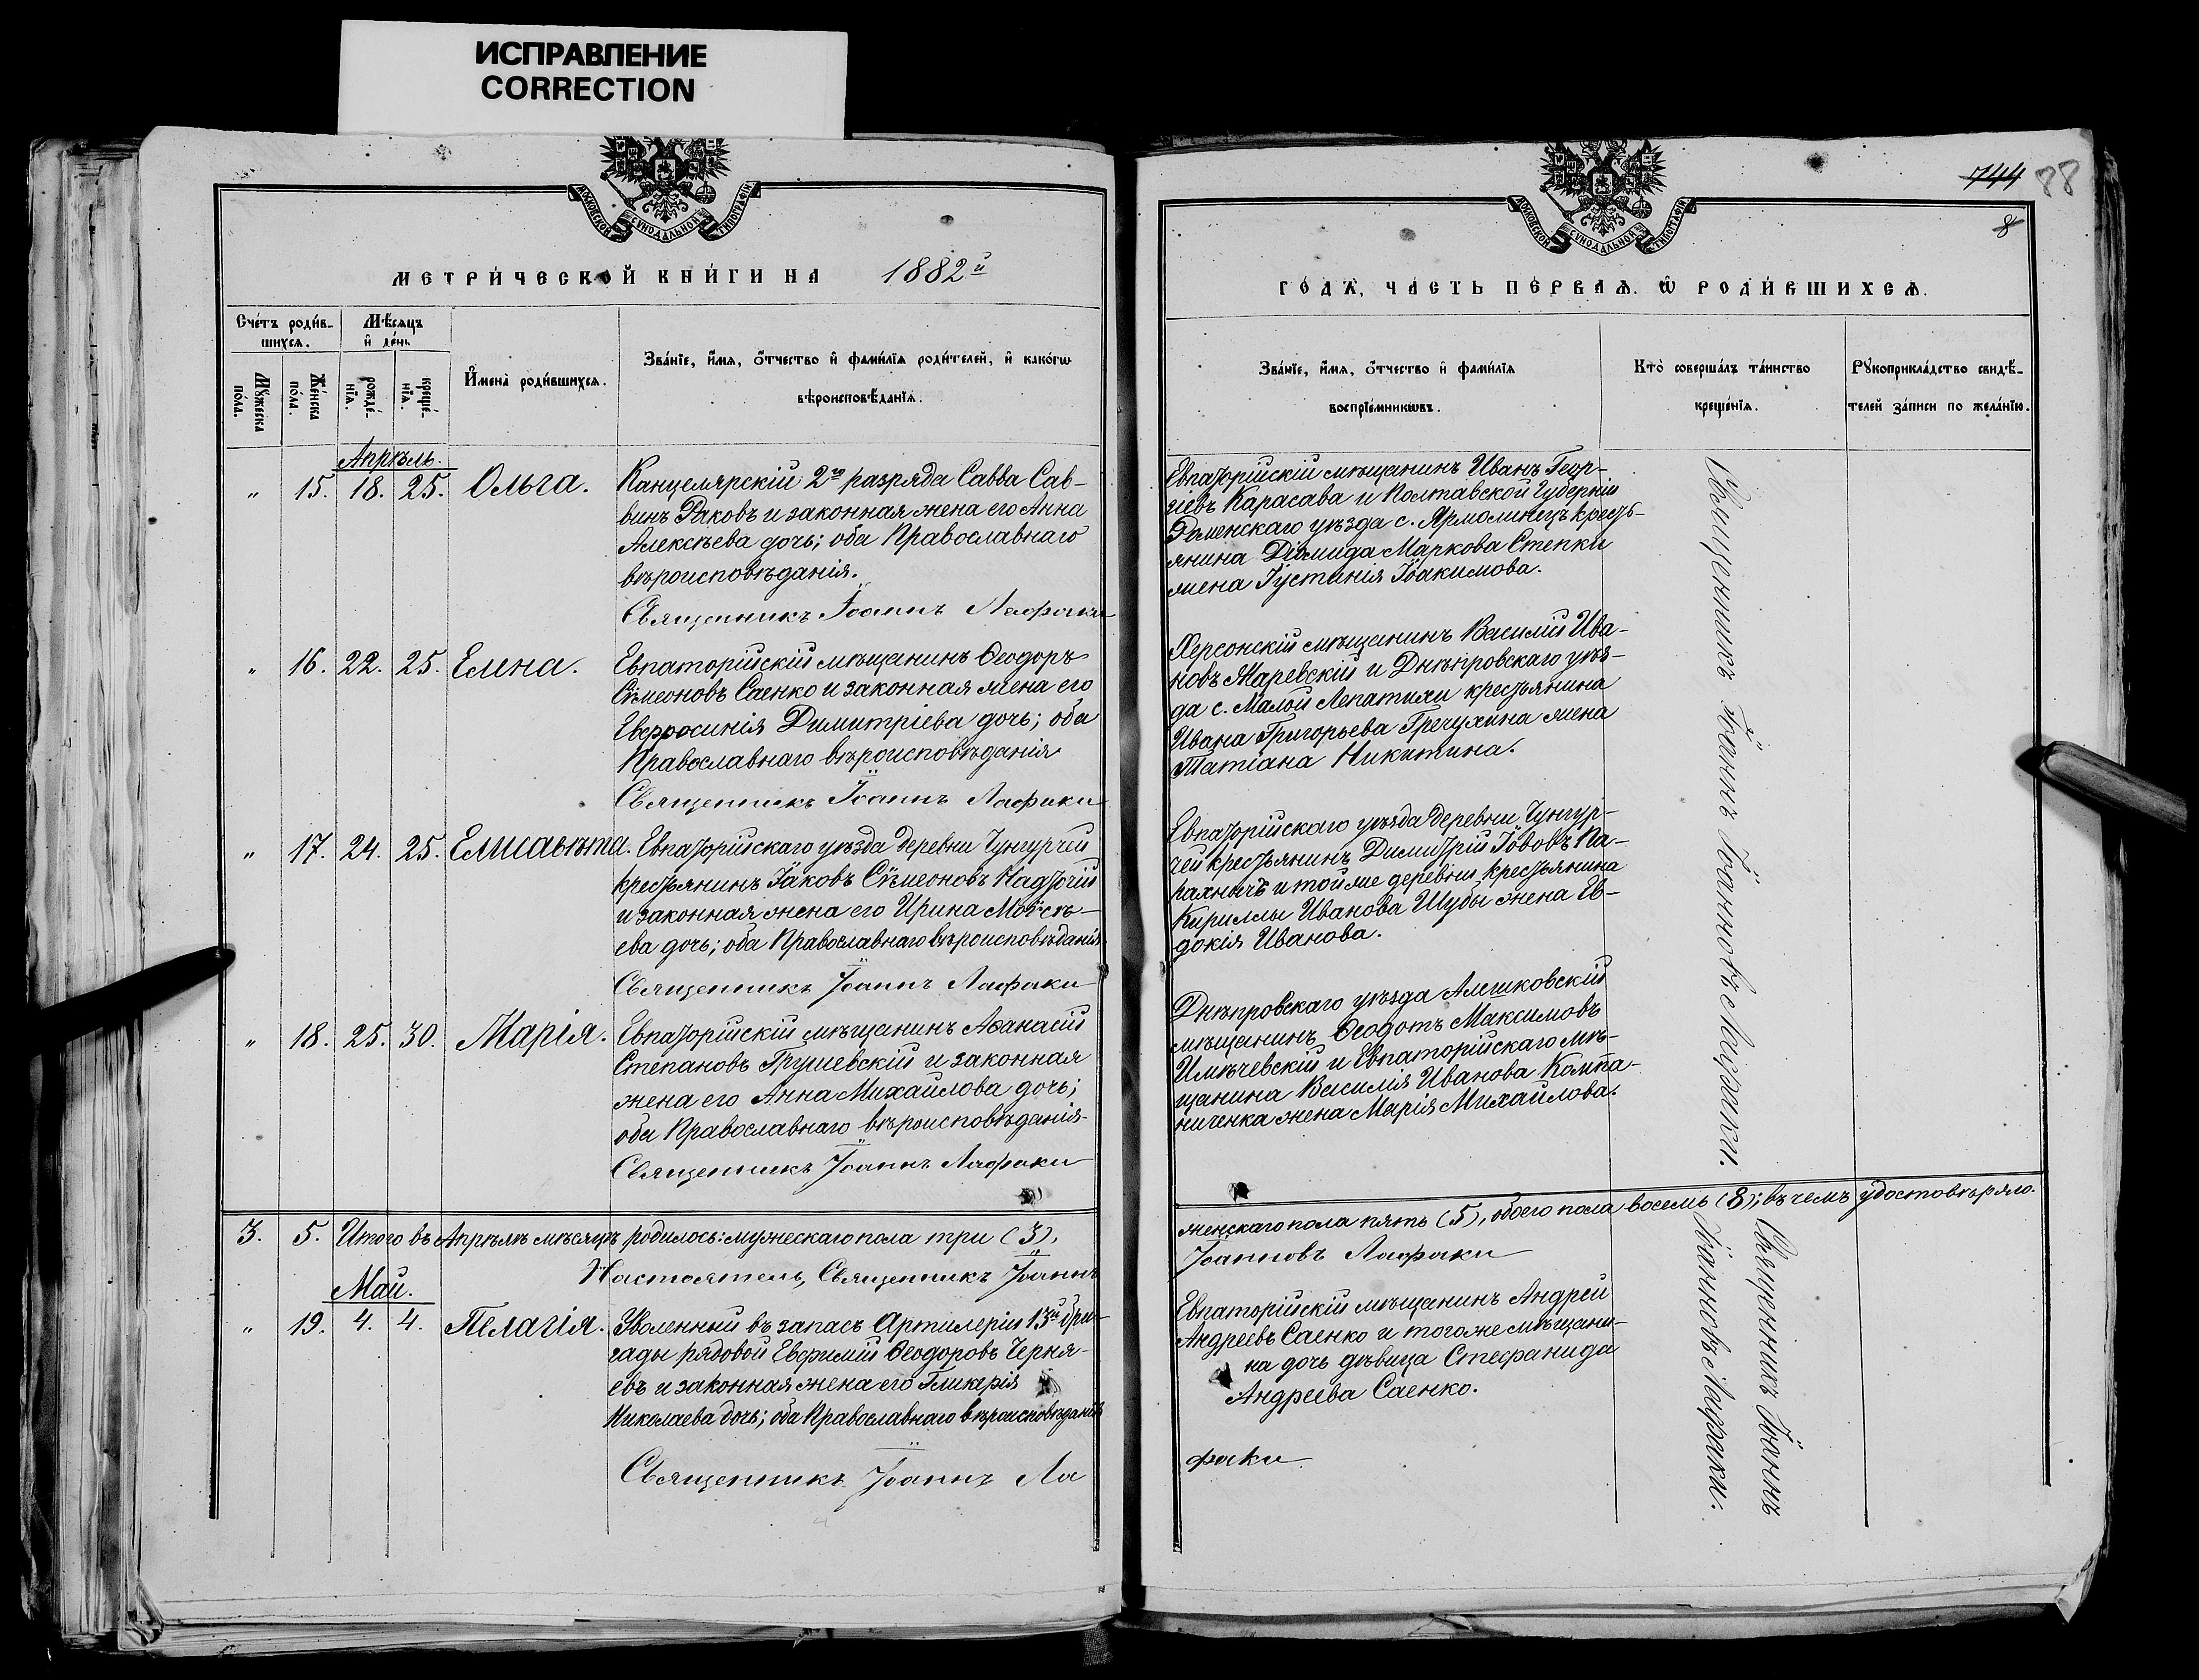 ИСПРАВЛЕНИЕ
CORRECTION
МОСКОВСКОЙ СѴНОДАЛЬНОЙ ТИПОГРАФІИ
МЕТРИ́ЧЕСКОЙ КНИ́ГИ НА 1882й
Сче́тъ роди́в-
шихсѧ.
Мѣ́сѧцъ
и҆ де́нь
Мꙋ́жеска
по́ла.
Же́нска
по́ла.
рожде́-
нїѧ.
креще́-
нїѧ.
И҆мена̀ роди́вшихсѧ.
Зва́нїе, и҆́мѧ, ѻ҆́тчество и҆ фами́лїѧ роди́телей, и҆ како́гѡ
вѣроисповѣ́данїѧ.
Апрѣль.
" 15. 18. 25. Ольга. Канцелярскій 2го разряда Савва Сав-
винъ Раковъ и законная жена его Анна
Алексѣева дочь; оба Православнаго
вѣроисповѣданія.
Священникъ Іоаннъ Лафаки
" 16. 22. 25. Елена. Евпаторійскій мѣщанинъ Ѳеодоръ
Сѵмеоновъ Саенко и законная жена его
Евфросинія Димитріева дочь; оба
Православнаго вѣроисповѣданія
Священникъ Іоаннъ Лафаки
" 17. 24. 25. Елисавѣта. Евпаторійскаго уѣзда деревни Чунгурчей
крестьянинъ Іаковъ Сѵмеоновъ Надточій
и законная жена его Ирина Моѵсѣ-
ева дочь; оба Православнаго вѣроисповѣданія
Священникъ Іоаннъ Лафаки
" 18. 25. 30. Марія. Евпаторійскій мѣщанинъ Аѳанасій
Степановъ Грушевскій и законная
жена его Анна Михайлова дочь;
оба Православнаго вѣроисповѣданія
Священникъ Іоаннъ Лафаки
3. 5. Итого въ Апрѣлѣ мѣсяцѣ родилось: мужескаго пола три (3),
Настоятель, Священникъ Іоаннъ
Май.
" 19. 4. 4. Пелагія. Уволенный въ запасъ Артилеріи 13й бри-
гады рядовой Евфимій Ѳеодоровъ Черня-
евъ и законная жена его Гликерія
Николаева дочь; оба Православнаго вѣроисповѣданія
Священникъ Іоаннъ Ла
744 88
8
МОСКОВСКОЙ СѴНОДАЛЬНОЙ ТИПОГРАФІИ
ГО́ДЪ, ЧА́СТЬ ПЕ́РВАѦ, Ѡ РОДИ́ВШИХСѦ.
Зва́нїе, и҆́мѧ, ѻ҆́тчество и҆ фами́лїѧ
воспрїе́мникѡвъ.
Кто̀ соверша́лъ та́инство
креще́нїѧ.
Рꙋкоприкла́дство свидѣ́-
телей за́писи по жела́нїю.
Евпаторійскій мѣщанинъ Иванъ Геор-
гіевъ Карасава и Полтавской Губерніи
Роменскаго уѣзда с. Ярмолинецъ кресть-
янина Діомида Маркова Степки
жена Іустинія Іоакимова.
Херсонскій мѣщанинъ Василій Ива-
новъ Маревскій и Днѣпровскаго уѣз-
да с. Малой Лепатихи крестьянина
Ивана Григорьева Гречухина жена
Татіана Никитина.
Евпаторійскаго уѣзда деревни Чунгур-
чей крестьянинъ Димитрій Іововъ Па-
рахничъ и той же деревни крестьянина
Кириллы Иванова Шубы жена Ев-
докія Иванова.
Днѣпровскаго уѣзда Алешковскій
мѣщанинъ Ѳеодотъ Максимовъ
Имѣчевскій и Евпаторійскаго мѣ-
щанина Василія Иванова Компа-
ниченка жена Марія Михайлова.
Священникъ Іоаннъ Іоанновъ Лафаки.
женскаго пола пять (5), обоего пола восемь (8); въ чемъ удостовѣряю.
Іоанновъ Лафаки
Евпаторійскій мѣщанинъ Андрей
Андреевъ Саенко и того же мѣщани-
на дочь дѣвица Стефанида
Андреева Саенко.
Священникъ Іоаннъ
Іоанновъ Лафаки.
факи